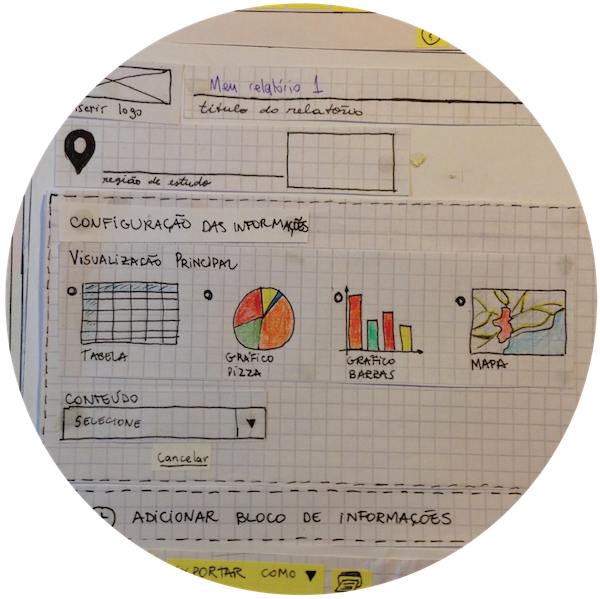 Meu relatório 1
serir logo
título do relatório
região de estudo
CONFIGURAÇÃO DAS INFORMAÇÕES
VISUALIZAÇÃO PRINCIPAL
TABELA
GRÁFICO
PIZZA
GRÁFICO
BARRAS
MAPA
CONTEÚDO
SELECIONE
Cancelar
ADICIONAR BLOCO DE INFORMAÇÕES
PORTAR COMO